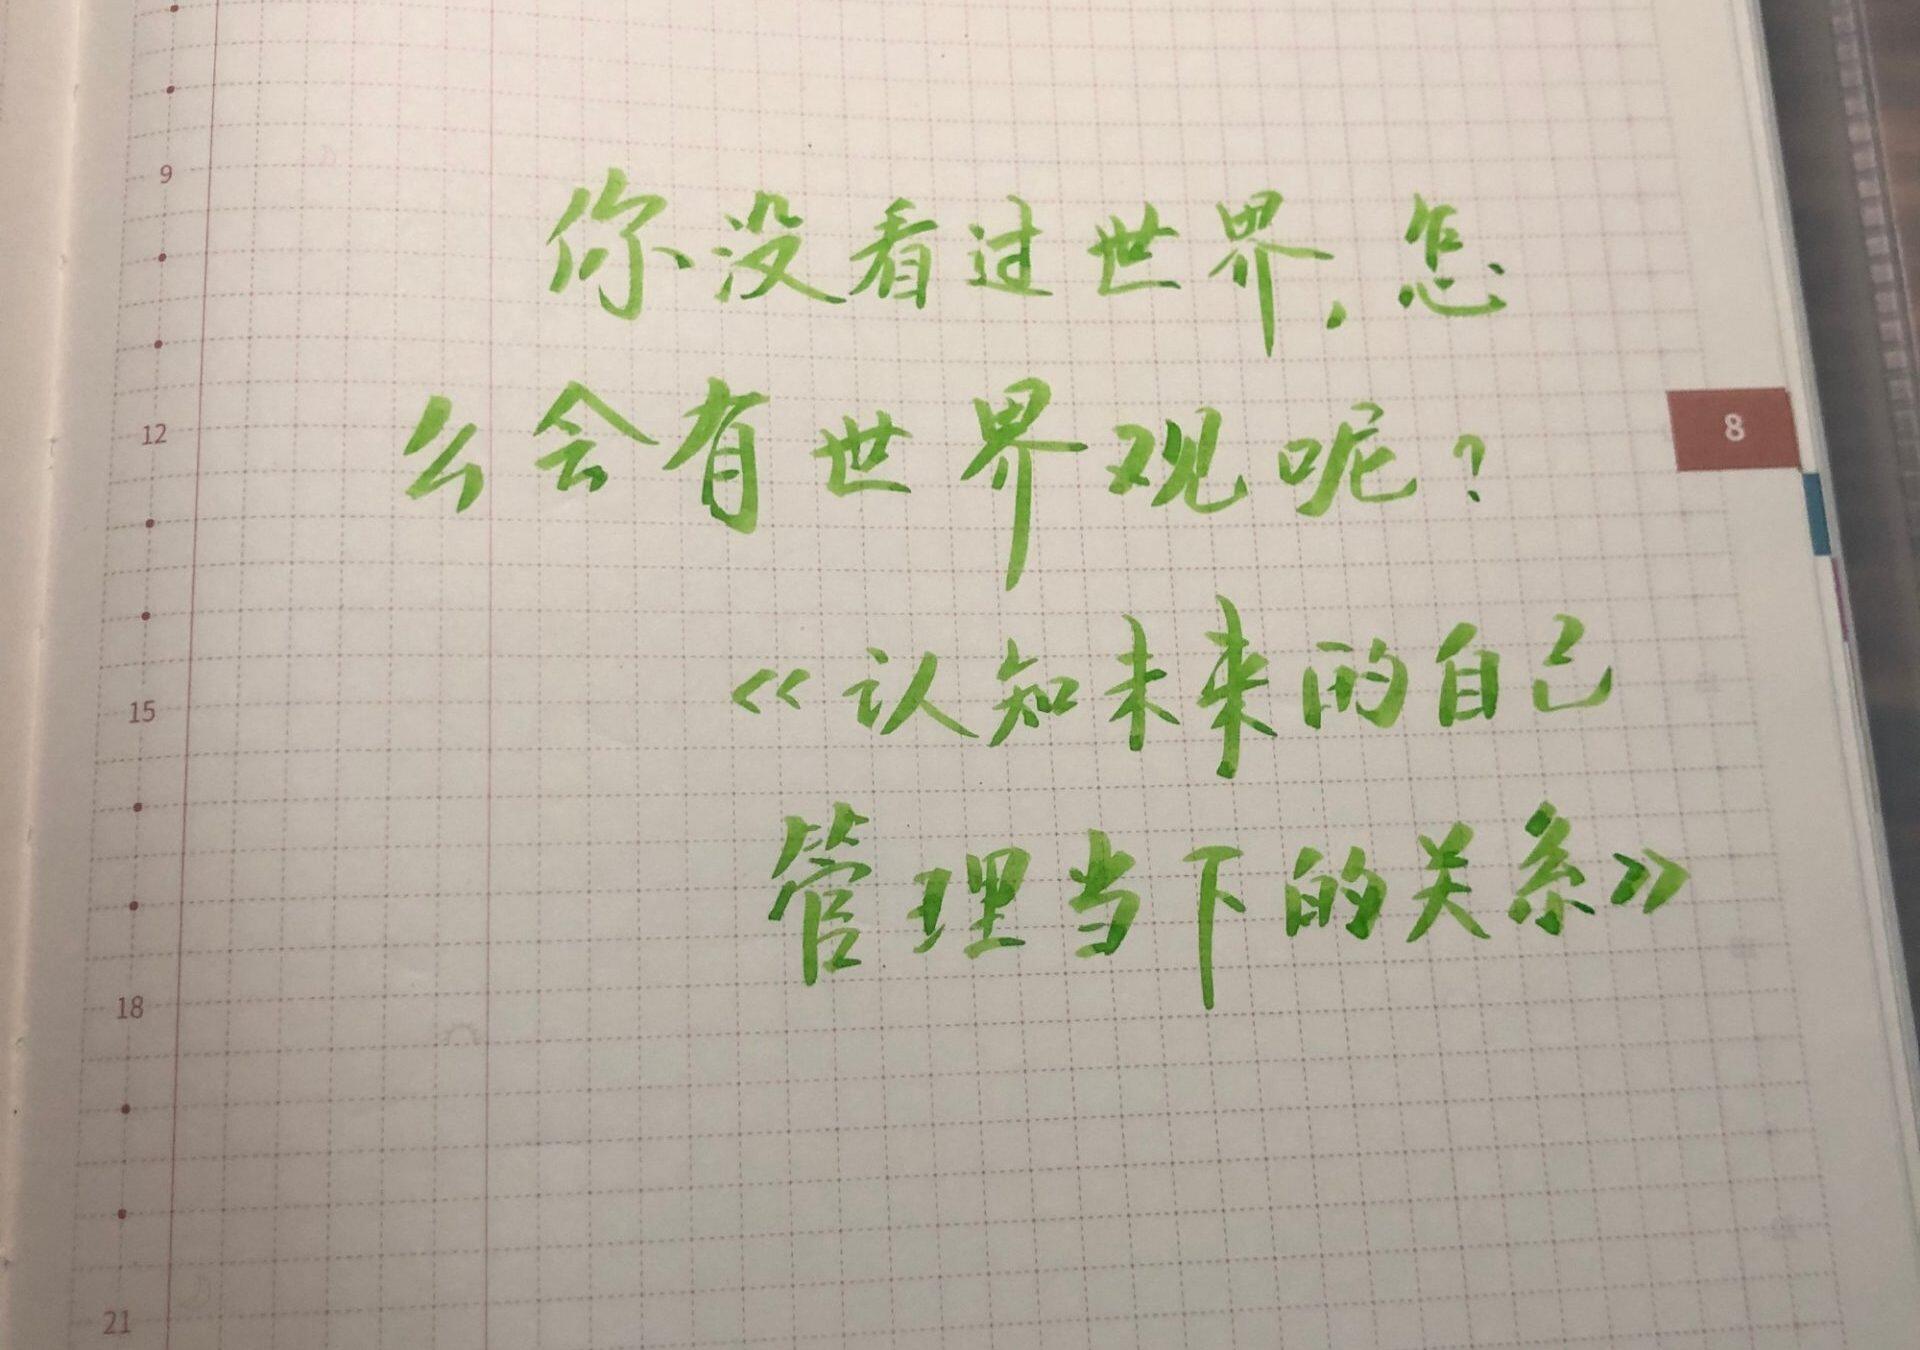 9
你没看过世界，怎
么会有世界观呢？
12
8
《认知未来的自己
15
管理当下的关系》
18
21